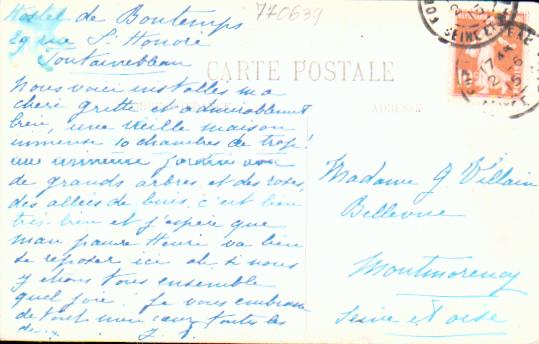 Hostel de Bontemps
29 rue St Honoré
Fontainebleau
770639
CARTE POSTALE
ADRESSE
Nous voici installés ma
chère Gritte et admirablement
bien, une vieille maison
immense 10 chambres de trop!
une immense jardin avec
de grands arbres et des roses,
des allées de buis, c'est bien
très bien et j'espère que
mon pauvre Henri va bien
se reposer ici ah si nous
y étions tous ensemble
quel joie! Je vous embrasse
de tout mon cœur toutes les
deux
Madame G Villain
Bellevue
Montmorency
Seine et oise